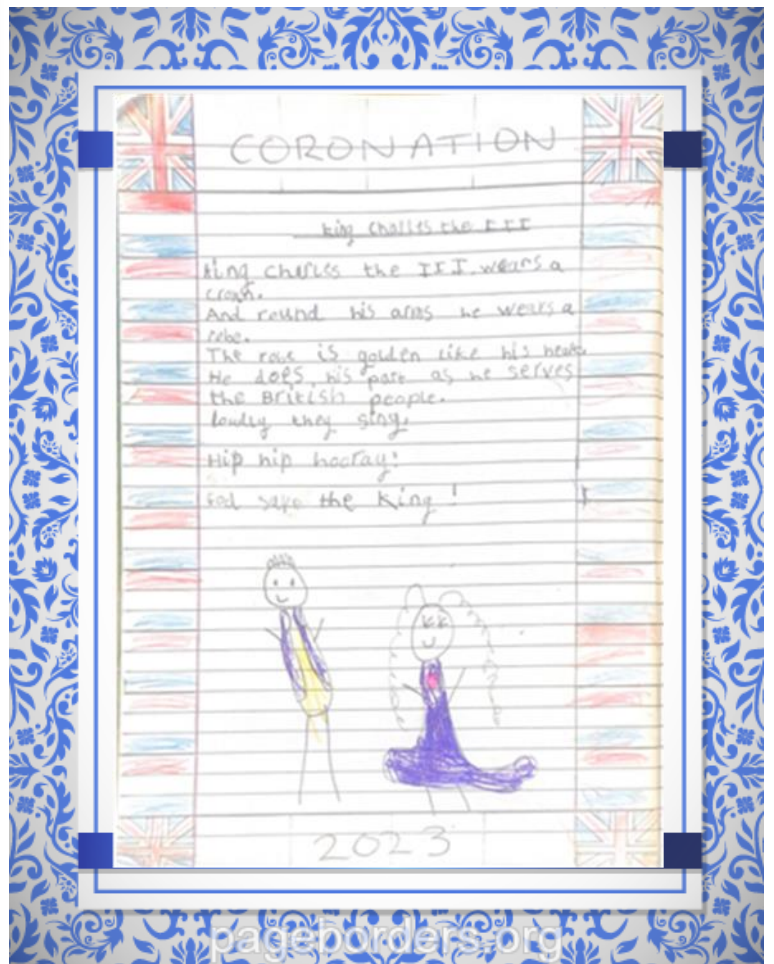 CORONATION
King Charles the III
King Charles the III wears a
crown.
And round his arms he wears a
robe.
The robe is golden like his heart.
He does his part as he serves
the British people.
loudly they sing,
Hip hip hooray!
God save the King!
2023
pageborders.org